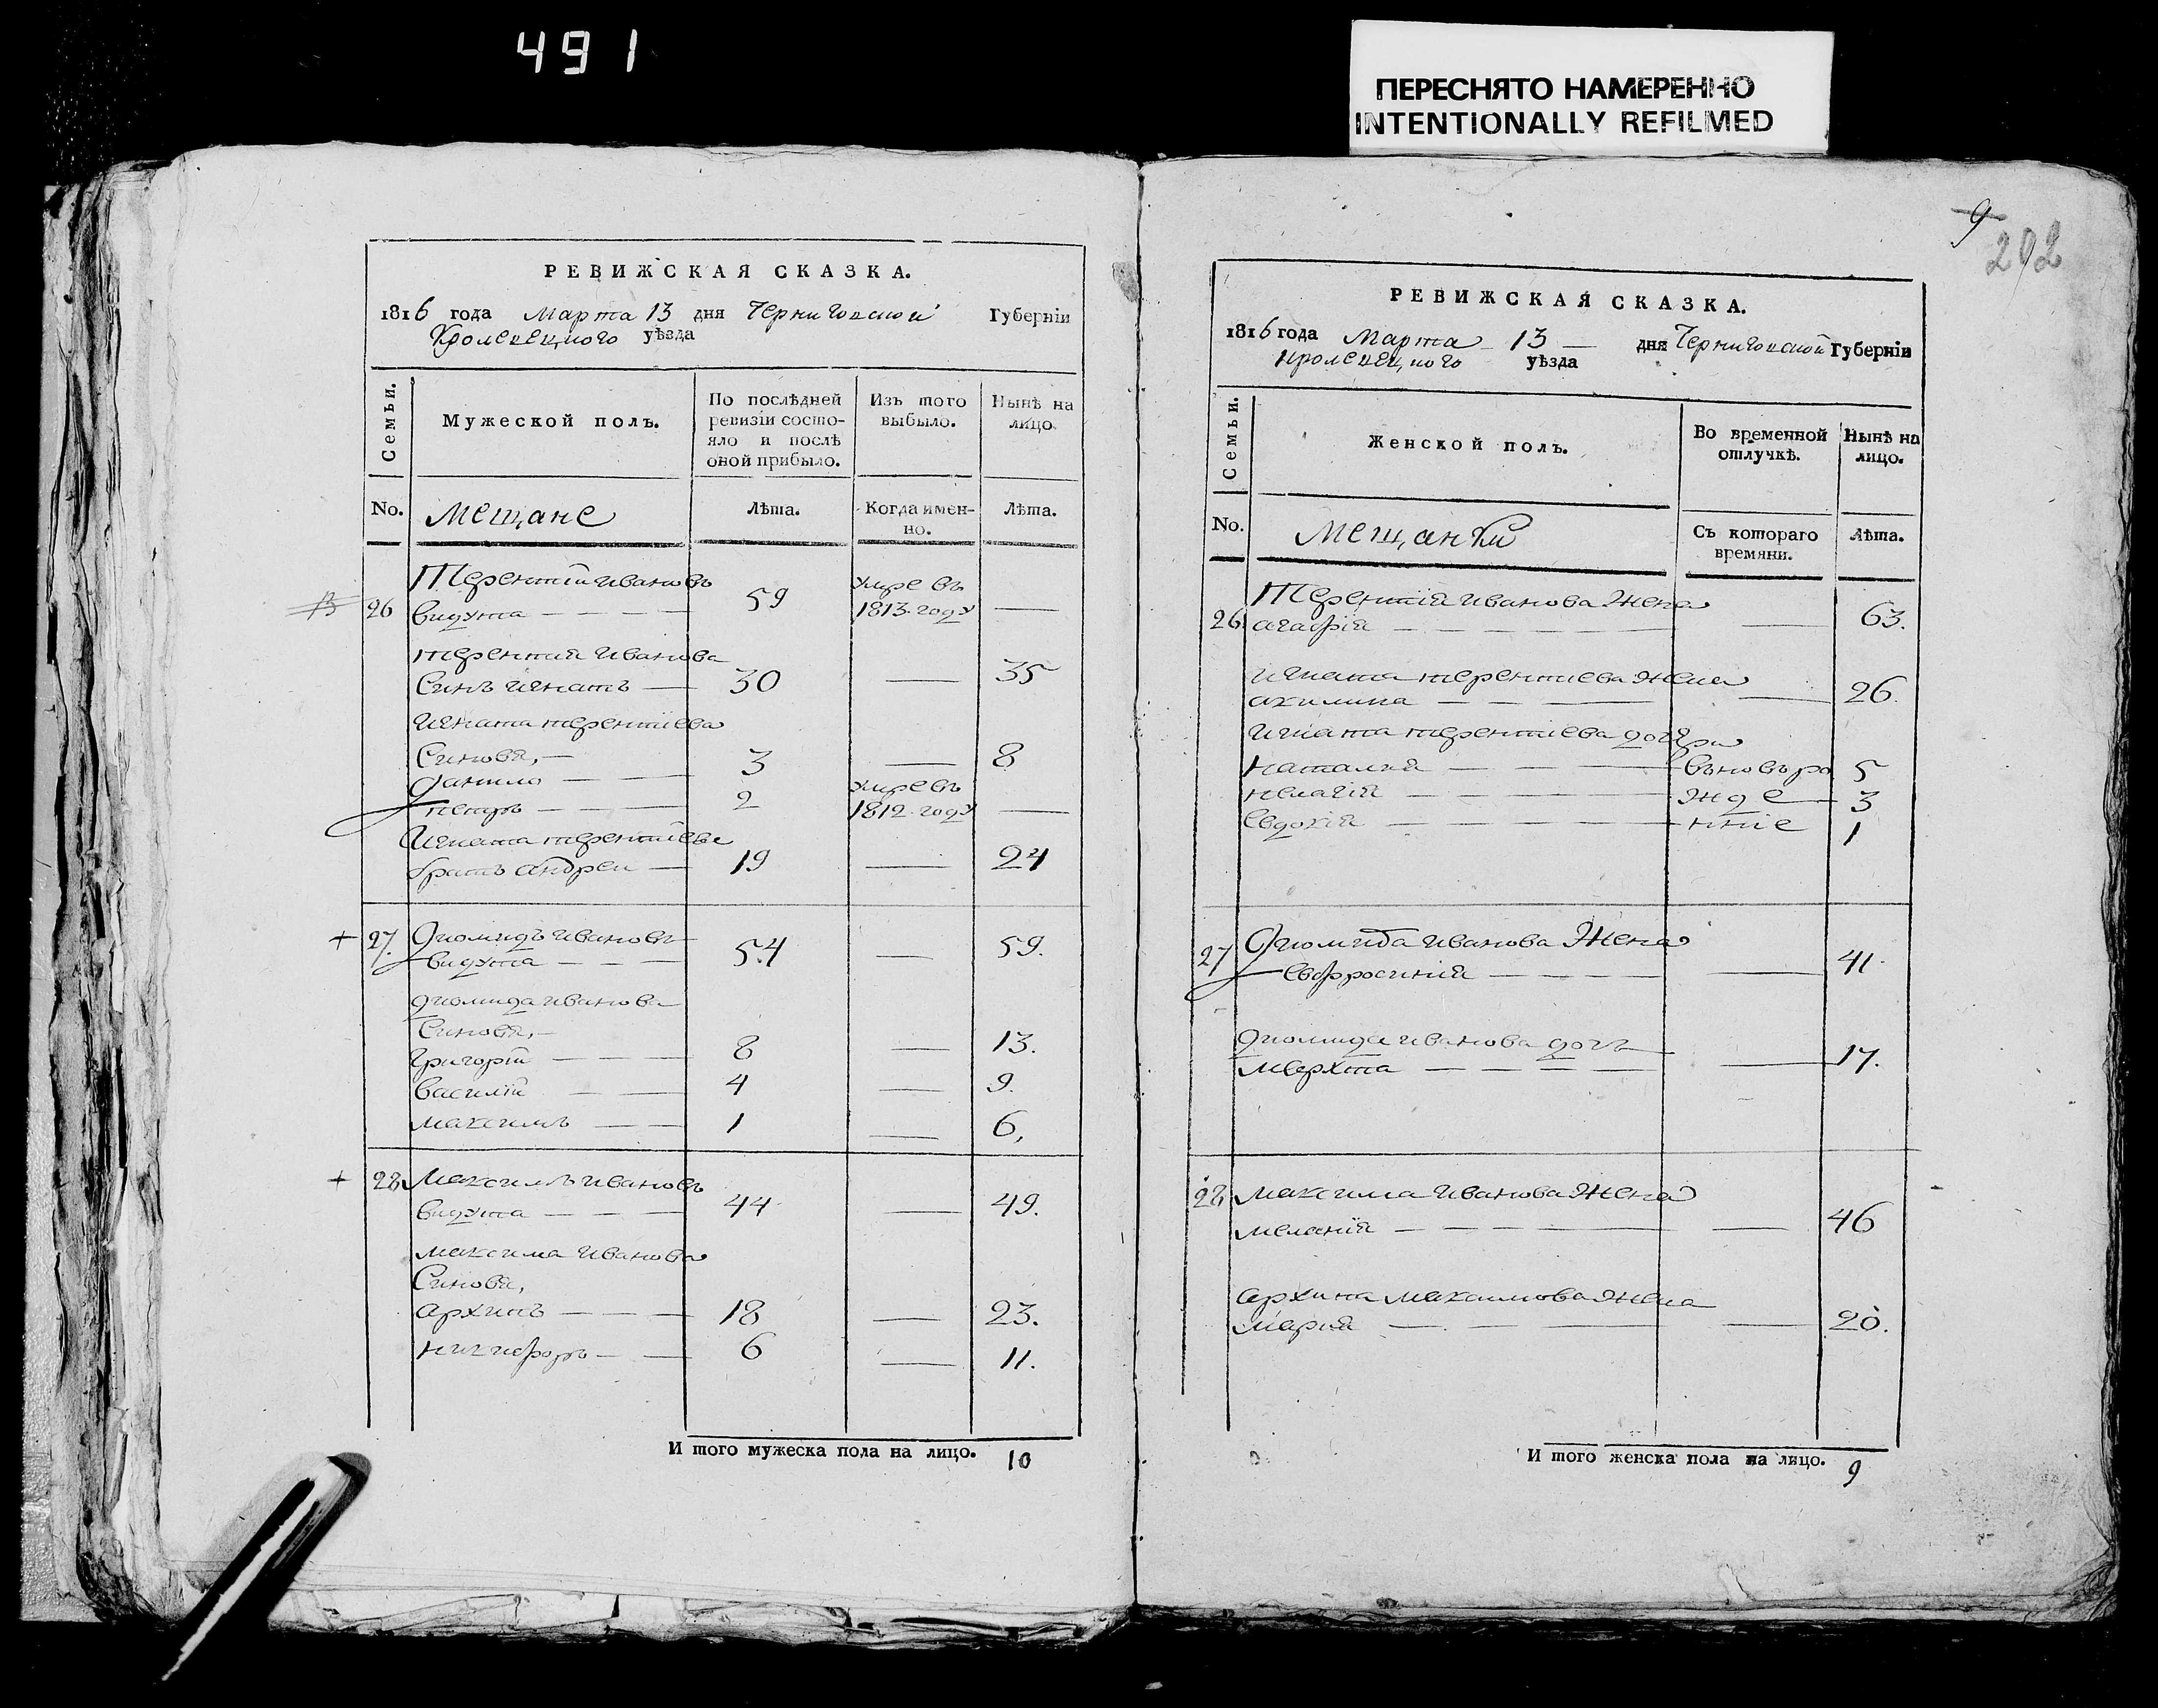 491
ПЕРЕСНЯТО НАМЕРЕННО
INTENTIONALLY REFILMED
9
202
РЕВИЖСКАЯ СКАЗКА.
1816 года Марта 13 дня Черниговской Губернїи
Кролевецкого уѣзда
Семьи.
Мужеской полъ.
По послѣдней ревизїи состо-
яло и послѣ
оной прибыло.
Изъ того
выбыло.
Нынѣ на
лицо
No.
мещане
Лѣта.
Когда имен-
но.
Лѣта.
Терентїй ивановъ умре въ
26 видута — 59 1813. году —
терентия иванова
Синъ игнатъ — 30 — 35
игната терентїева
Синовя,
данило — 3 — 8
петръ — 2 умре въ 1812. году —
Игната терентїева
братъ андреи — 19 — 24
27. Диомидъ ивановъ
видута — 54 — 59.
диомида иванова
Синовя,
григорїи — 8 — 13.
василїи — 4 — 9.
максимъ — 1 — 6,
28 Максимъ ивановъ
видута — 44 — 49.
максима иванова
Синовя,
архипъ — 18 — 23.
никифоръ — 6 — 11.
И того мужеска пола на лицо. 10
РЕВИЖСКАЯ СКАЗКА.
1816 года Марта 13 — дня Черниговской Губернїи
кролевецкого уѣзда
Семьи.
Женской полъ.
Во временной
отлучкѣ.
Нынѣ на
лицо.
No.
Мещанки
Съ котораго
времяни.
Лѣта.
Терентїя иванова жена
26. агафїя — — 63.
игната терентиева жена
акилина — — 26.
игната терентїева дочери
наталия — вновъ ро 5
пелагїя — жде — 3
Евдокїя — ннїе 1
27 Диомида иванова жена
Евфросинїя — — 41.
диомида иванова дочъ
мархта — — 17.
28 максима иванова жена
меланїя — — 46
архипа максимова жена
мария — — 20.
И того женска пола на лицо. 9